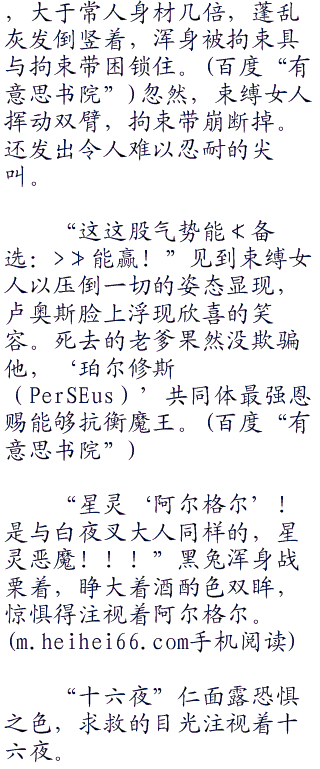 ，大于常人身材几倍，蓬乱
灰发倒竖着，浑身被拘束具
与拘束带困锁住。(百度“有
意思书院”)忽然，束缚女人
挥动双臂，拘束带崩断掉。
还发出令人难以忍耐的尖
叫。
“这这股气势能≮备
选：>≯能赢！”见到束缚女
人以压倒一切的姿态显现，
卢奥斯脸上浮现欣喜的笑
容。死去的老爹果然没欺骗
他，‘珀尔修斯
（PerSEus）’共同体最强恩
赐能够抗衡魔王。(百度“有
意思书院”)
“星灵‘阿尔格尔’！
是与白夜叉大人同样的，星
灵恶魔！！！”黑兔浑身战
栗着，睁大着酒酌色双眸，
惊惧得注视着阿尔格尔。
(m.heihei66.com手机阅读)
“十六夜”仁面露恐惧
之色，求救的目光注视着十
六夜。